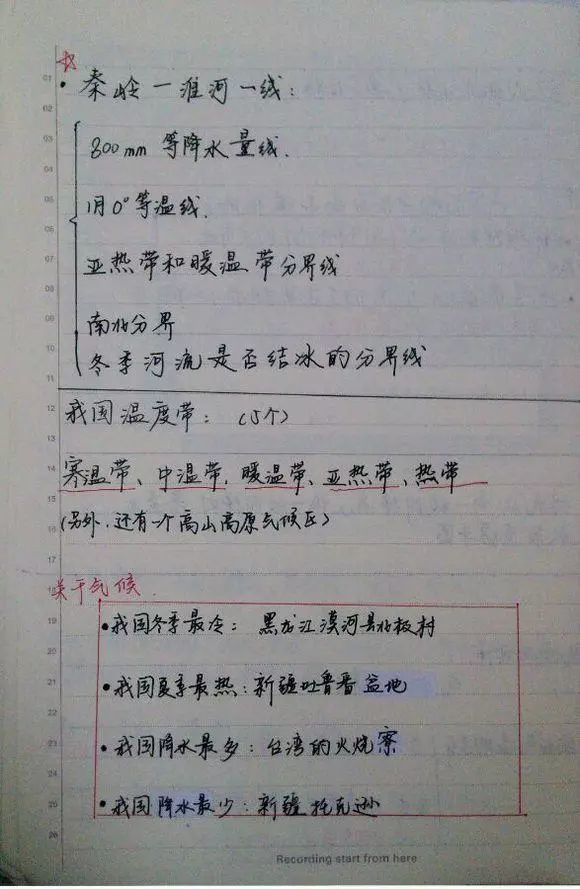 • 秦岭一淮河一线：
800mm 等降水量线.
1月0°等温线.
亚热带和暖温带分界线
南北分界
冬季河流是否结冰的分界线
我国温度带：（5个）
寒温带、中温带、暖温带、亚热带、热带
（另外，还有一个高山高原气候区）
关于气候.
• 我国冬季最冷：黑龙江漠河县北极村
• 我国夏季最热：新疆吐鲁番盆地
• 我国降水最多：台湾的火烧寮
• 我国降水最少：新疆托克逊
Recording start from here